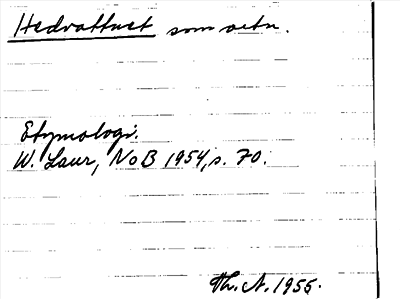 Hedvattnet som ortn.
Etymologi.
W. Laur, NoB 1954, s. 70.
Th. A. 1955.